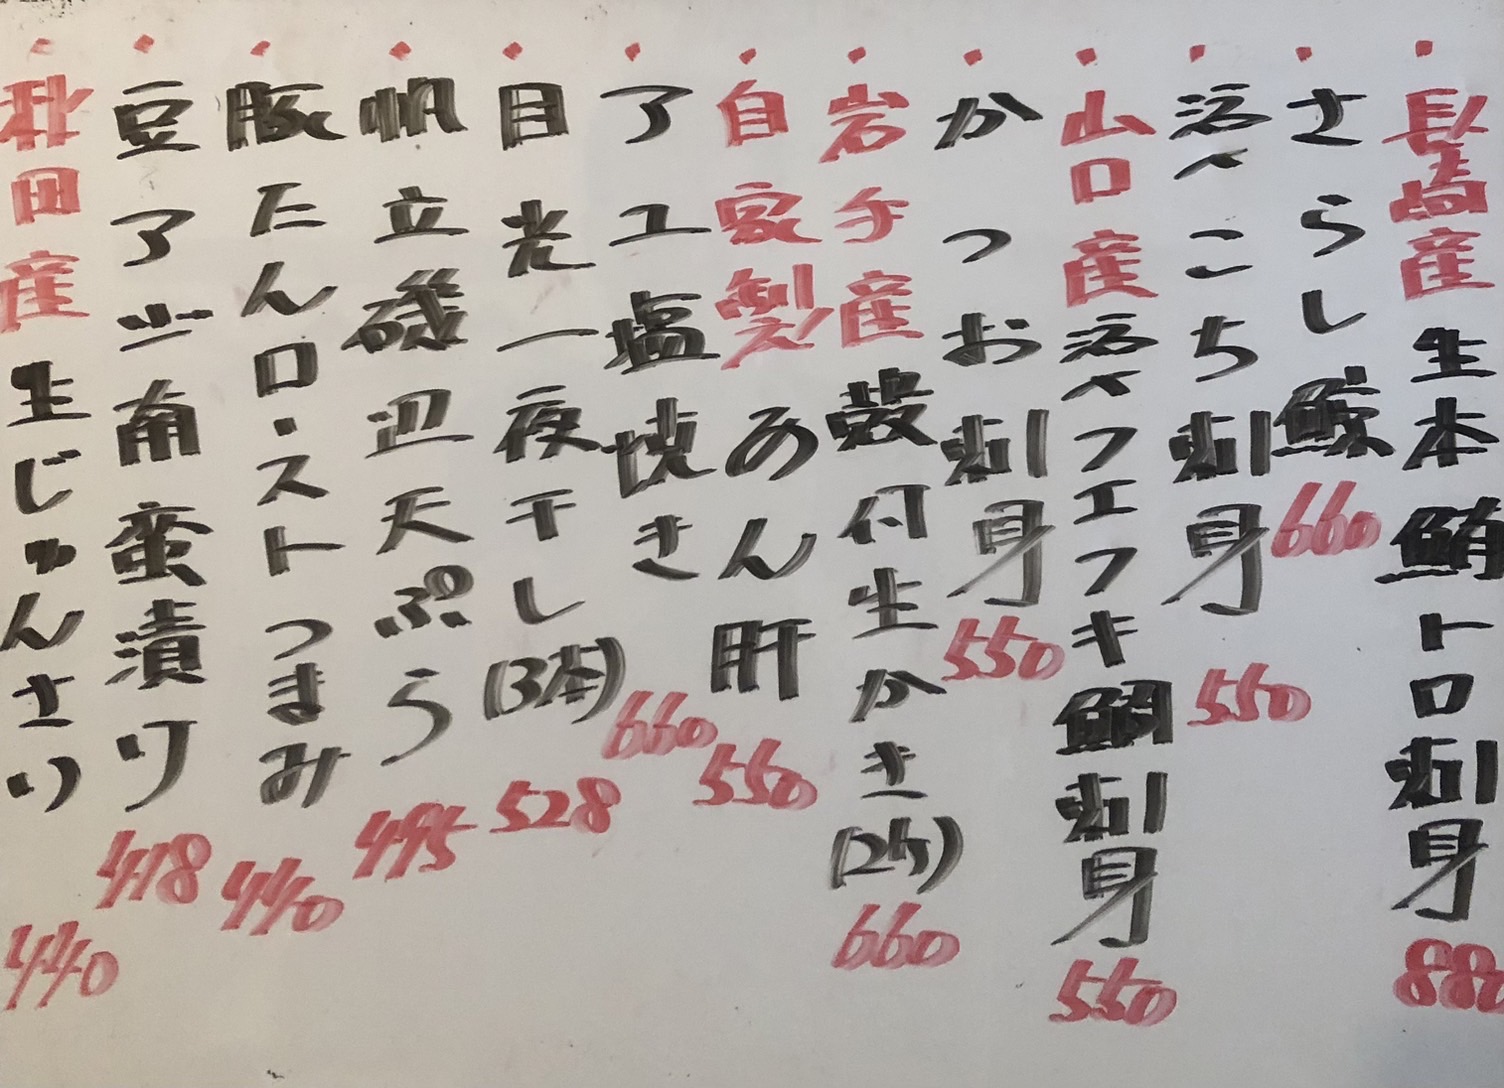 ・長崎産生本鮪トロ刺身 880
・さらし鯨 660
・活〆こち刺身 550
・山口産活〆フエフキ鯛刺身 550
・かつお刺身 550
・岩手産殻付生かき(2ヶ) 660
・自家製あん肝 550
・アユ塩焼き 660
・目光一夜干し(3本) 528
・帆立磯辺天ぷら 495
・豚たんローストつまみ 440
・豆アジ南蛮漬け 418
・秋田産生じゅんさい 440